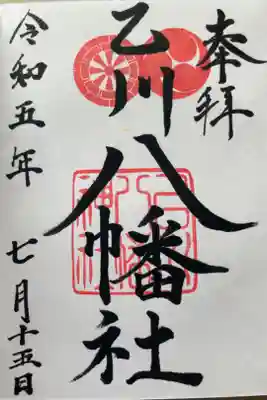 奉拝
乙川八幡社
令和五年 七月十五日